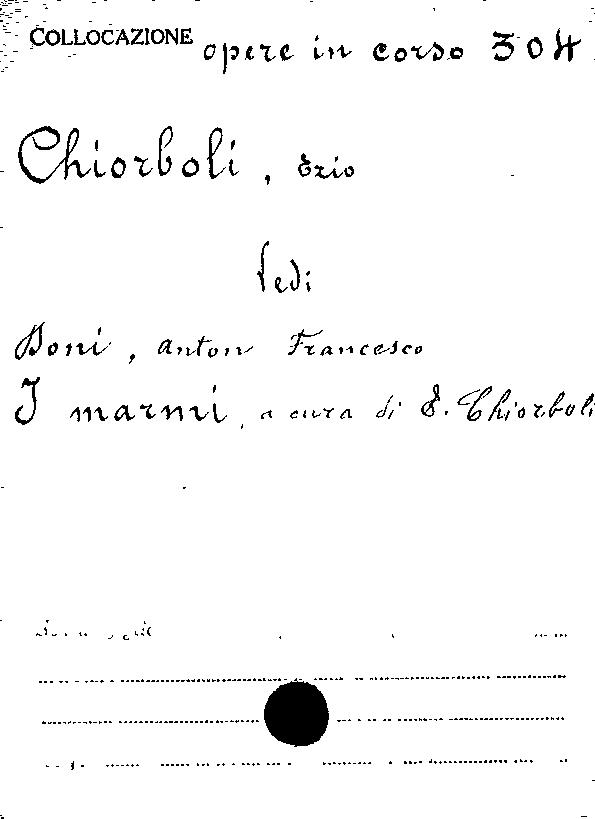 COLLOCAZIONE opere in corso 304
Chiorboli, Ezio
Vedi
Doni, Anton Francesco
I marmi, a cura di E. Chiorboli